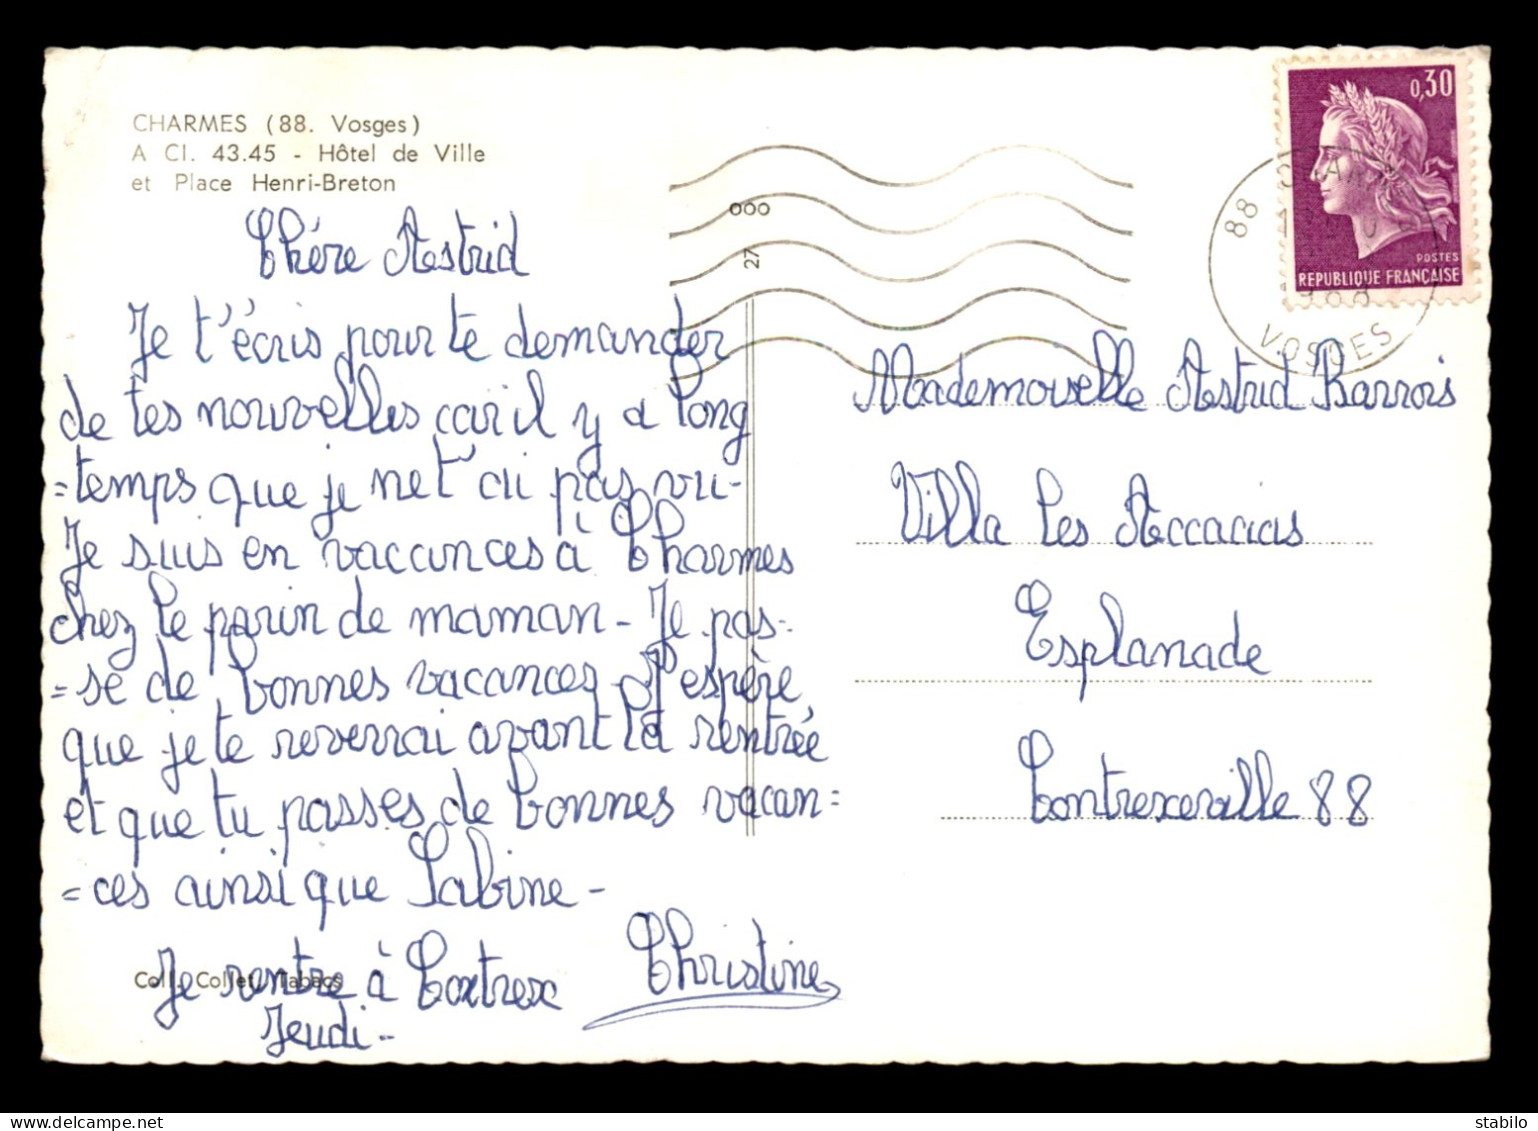 CHARMES (88. Vosges)
A Cl. 43.45 - Hôtel de Ville
et Place Henri-Breton
Chére Astrid
Je t'écris pour te demander
de tes nouvelles car il y a long
=temps que je ne t'ai pas vu-
Je suis en vacances à Charmes
chez le parin de maman - Je pas-
=se de bonnes vacances J'espère
que je te reverrai avant la rentrée
et que tu passes de bonnes vacan=
=ces ainsi que Sabine -
Je rentre à Contrex
Jeudi -
Christine
Coll. Collet, Tabacs
000
27
0,30
POSTES
REPUBLIQUE FRANÇAISE
88
VOSGES
Mademoiselle Astrid Barrois
Villa les Accacias
Esplanade
Contrexeville 88
delcampe.net
stabilo